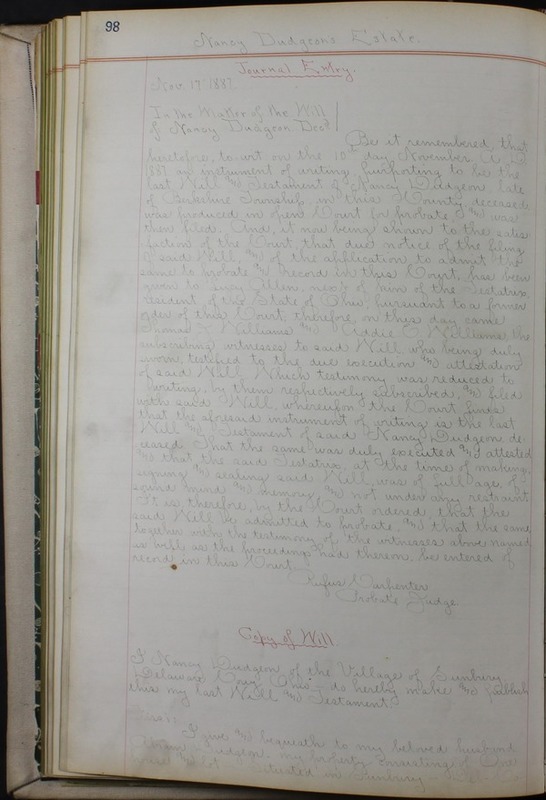 98
Nancy Dudgeon's Estate.
Journal Entry.
Nov. 17" 1887
In the Matter of the Will
of Nancy Dudgeon Decd
Be it remembered, that
heretofore, to-wit, on the 10" day November A. D.
1887 an instrument of writing purporting to be the
last Will and Testament of Nancy Dudgeon, late
of Berkshire Township, in this County, deceased
was produced in open Court for probate, and was
then filed. And, it now being shown to the satis
faction of the Court, that due notice of the filing
of said Will, and of the application to admit the
same to probate and record in this Court, has been
given to Allen, next of kin of the Testatrix,
resident of the State of Ohio, pursuant to a former
order of this Court, therefore, on this day came
Thomas Williams and Addie C. Williams the
subscribing witnesses to said Will, who being duly
sworn, testified to the due execution and attestation
of said Will. Which testimony was reduced to
writing, by them respectively subscribed, and filed
with said Will, whereupon the Court finds
that the aforesaid instrument of writing is the last
Will and Testament of said Nancy Dudgeon de-
ceased. That the same was duly executed and attested
and that the said Testatrix, at the time of making,
signing and sealing said Will, was of full age, of
sound mind and memory, and not under any restraint
It is, therefore, by the Court ordered, that the
said Will be admitted to probate, and that the same,
together with the testimony of the witnesses above named
as well as the proceedings had thereon, be entered of
record in this Court.
Rufus Carpenter
Probate Judge
Copy of Will.
I Nancy Dudgeon, of the Village of Sunbury
Delaware Ohio - do hereby make and publish
this my last Will and Testament.
I give and bequeathe to my beloved husband
Dudgeon, my property consisting of One
and lot situated in Sunbury